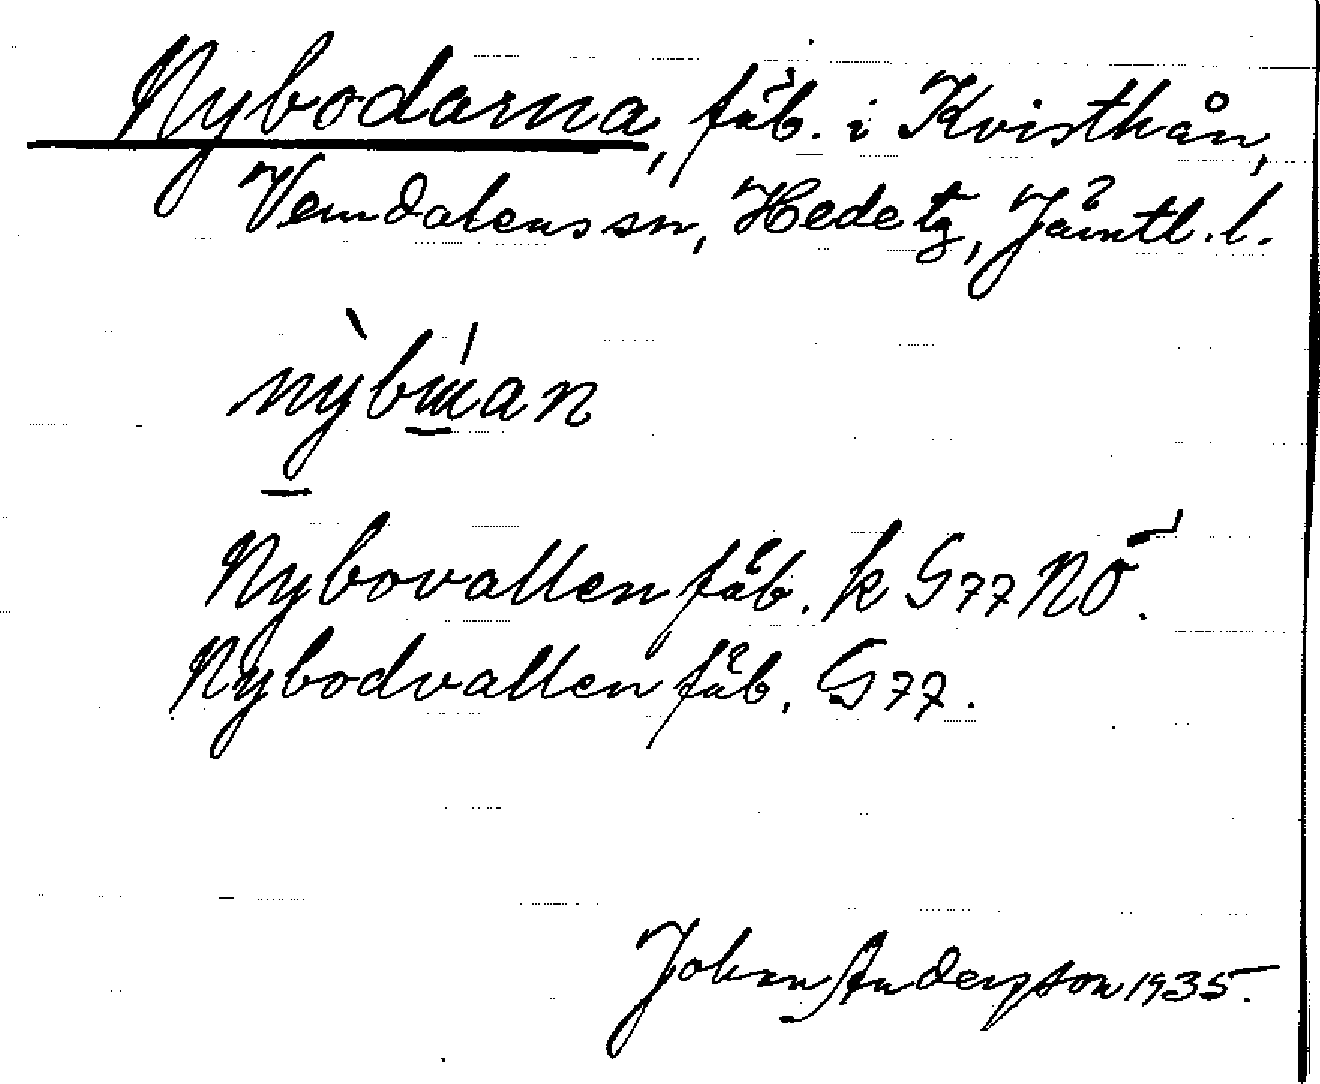 Nybodarna, fäb. i Kvisthån,
Vemdalens sn, Hede tg, Jämtl. l.
Nybovallen fäb. k G77 NO.
Nybodvallen fäb. G77.
Johan Andersson 1935.